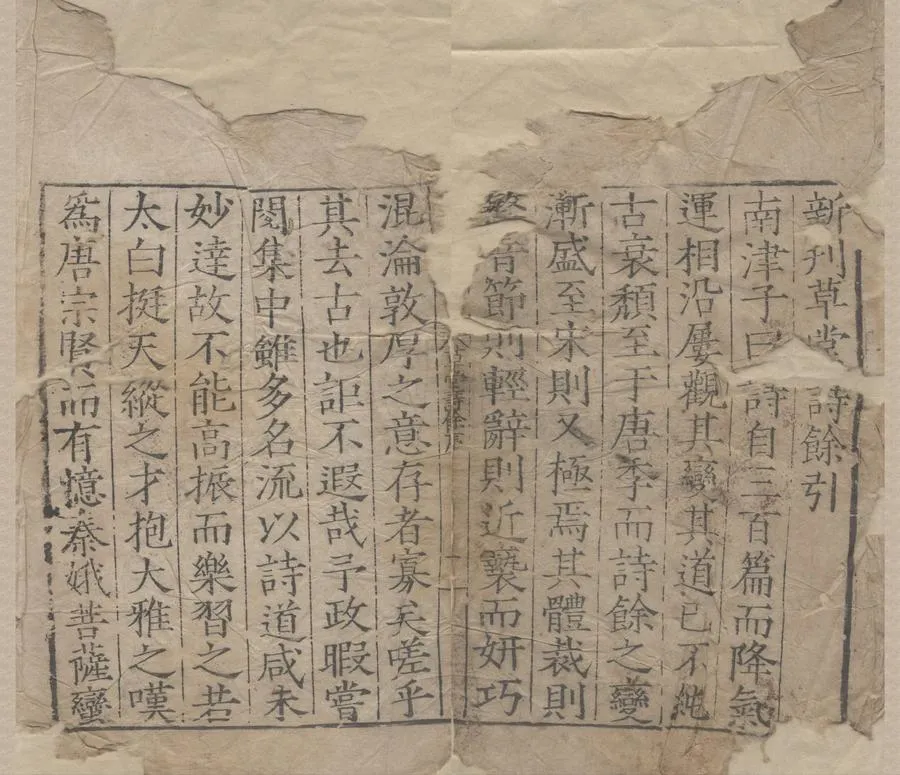 新刊草堂詩餘引
南津子曰詩自三百篇而降氣
運相沿屢觀其變其道已不純
古衰頹至于唐季而詩餘之變
漸盛至宋則又極焉其體裁則
繁音節則輕辭則近褻而妍巧
草堂詩餘序
混淪敦厚之意存者寡矣嗟乎
其去古也詎不遐哉予政暇嘗
閱集中雖多名流以詩道咸未
妙達故不能高振而樂習之若
太白挺天縱之才抱大雅之嘆
為唐宗賢而有憶秦娥菩薩蠻